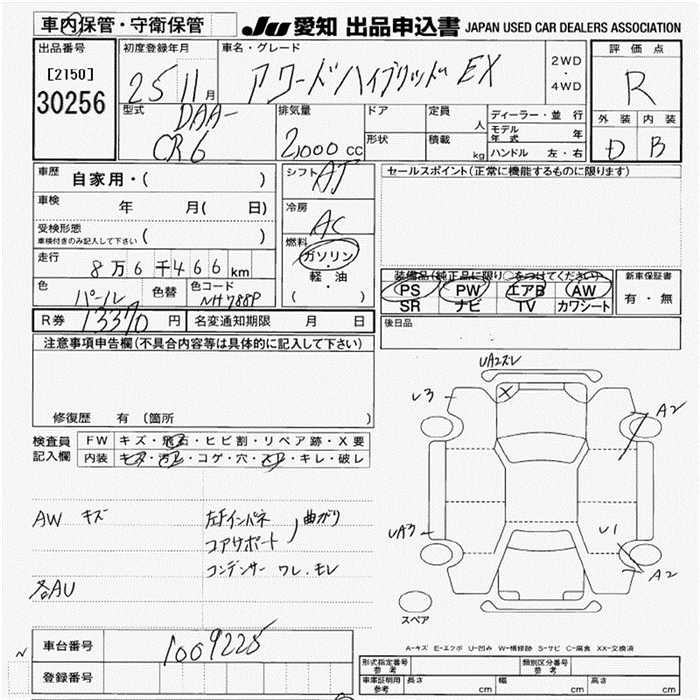 車内保管・守衛保管
JU 愛知 出品申込書 JAPAN USED CAR DEALERS ASSOCIATION
出品番号
[2150]
30256
初度登録年月
25 11月
車名・グレード
アコードハイブリッド EX
2WD
・
4WD
評価点
R
外装 内装
D B
型式
DAA-
CR6
排気量
2,000 CC
ドア
形状
定員
人
積載
kg
ディーラー・並行
モデル年式 年
ハンドル 左・右
車歴
自家用・( )
車検
年 月( 日)
受検形態
車検付きのみ記入して下さい ( )
走行
8万6千466km
色
パール
色替
色コード
NH788P
シフト
AT
冷房
AC
燃料
ガソリン・
軽・油
( )
セールスポイント(正常に機能するものに限ります)
装備品(純正品に限り○をつけてください)
PS PW エアB AW
SR ナビ TV カワシート
新車保証書
有・無
後日品
R券 13370 円 名変通知期限 月 日
注意事項申告欄(不具合内容等は具体的に記入して下さい)
修復歴 有 (箇所 )
検査員
記入欄
FW キズ・飛石・ヒビ割・リペア跡・X要
内装 キズ・汚れ・コゲ・穴・スレ・キレ・破レ
AW キズ
左Fインパネ
コアサポート
曲がり
コンデンサー ワレ.モレ
各AU
UA2ズレ
X
U3
A2
UA3
U1
A2
スペア
A-キズ E-エクボ U-凹み W-補修跡 S-サビ C-腐食 XX-交換済
車台番号
1009225
登録番号
N
形式指定番号
参考
類別区分番号
参考
車庫証明用
参考
長さ cm 幅 cm 高さ cm